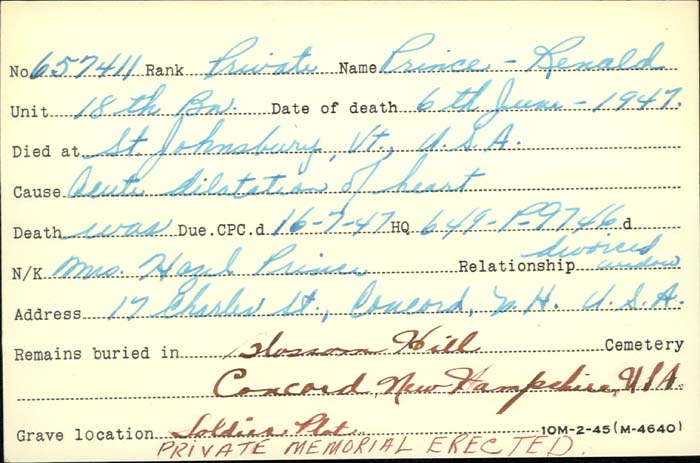 No 657411 Rank Private Name Prince - Renald
Unit 18th Bn Date of death 6th June - 1947.
Died at St Johnsbury, Vt., U.S.A.
Cause Acute dilatation of heart
Death was Due. CPC.d 16-7-47 HQ 649-P-9746 d
N/K Mrs. Hazel Prince Relationship divorced widow
Address 17 Charles St., Concord, N.H. U.S.A.
Remains buried in Blossom Hill Cemetery
Concord, New Hampshire, USA
Grave location Soldiers Plat 10M-2-45 (M-4640)
PRIVATE MEMORIAL ERECTED.